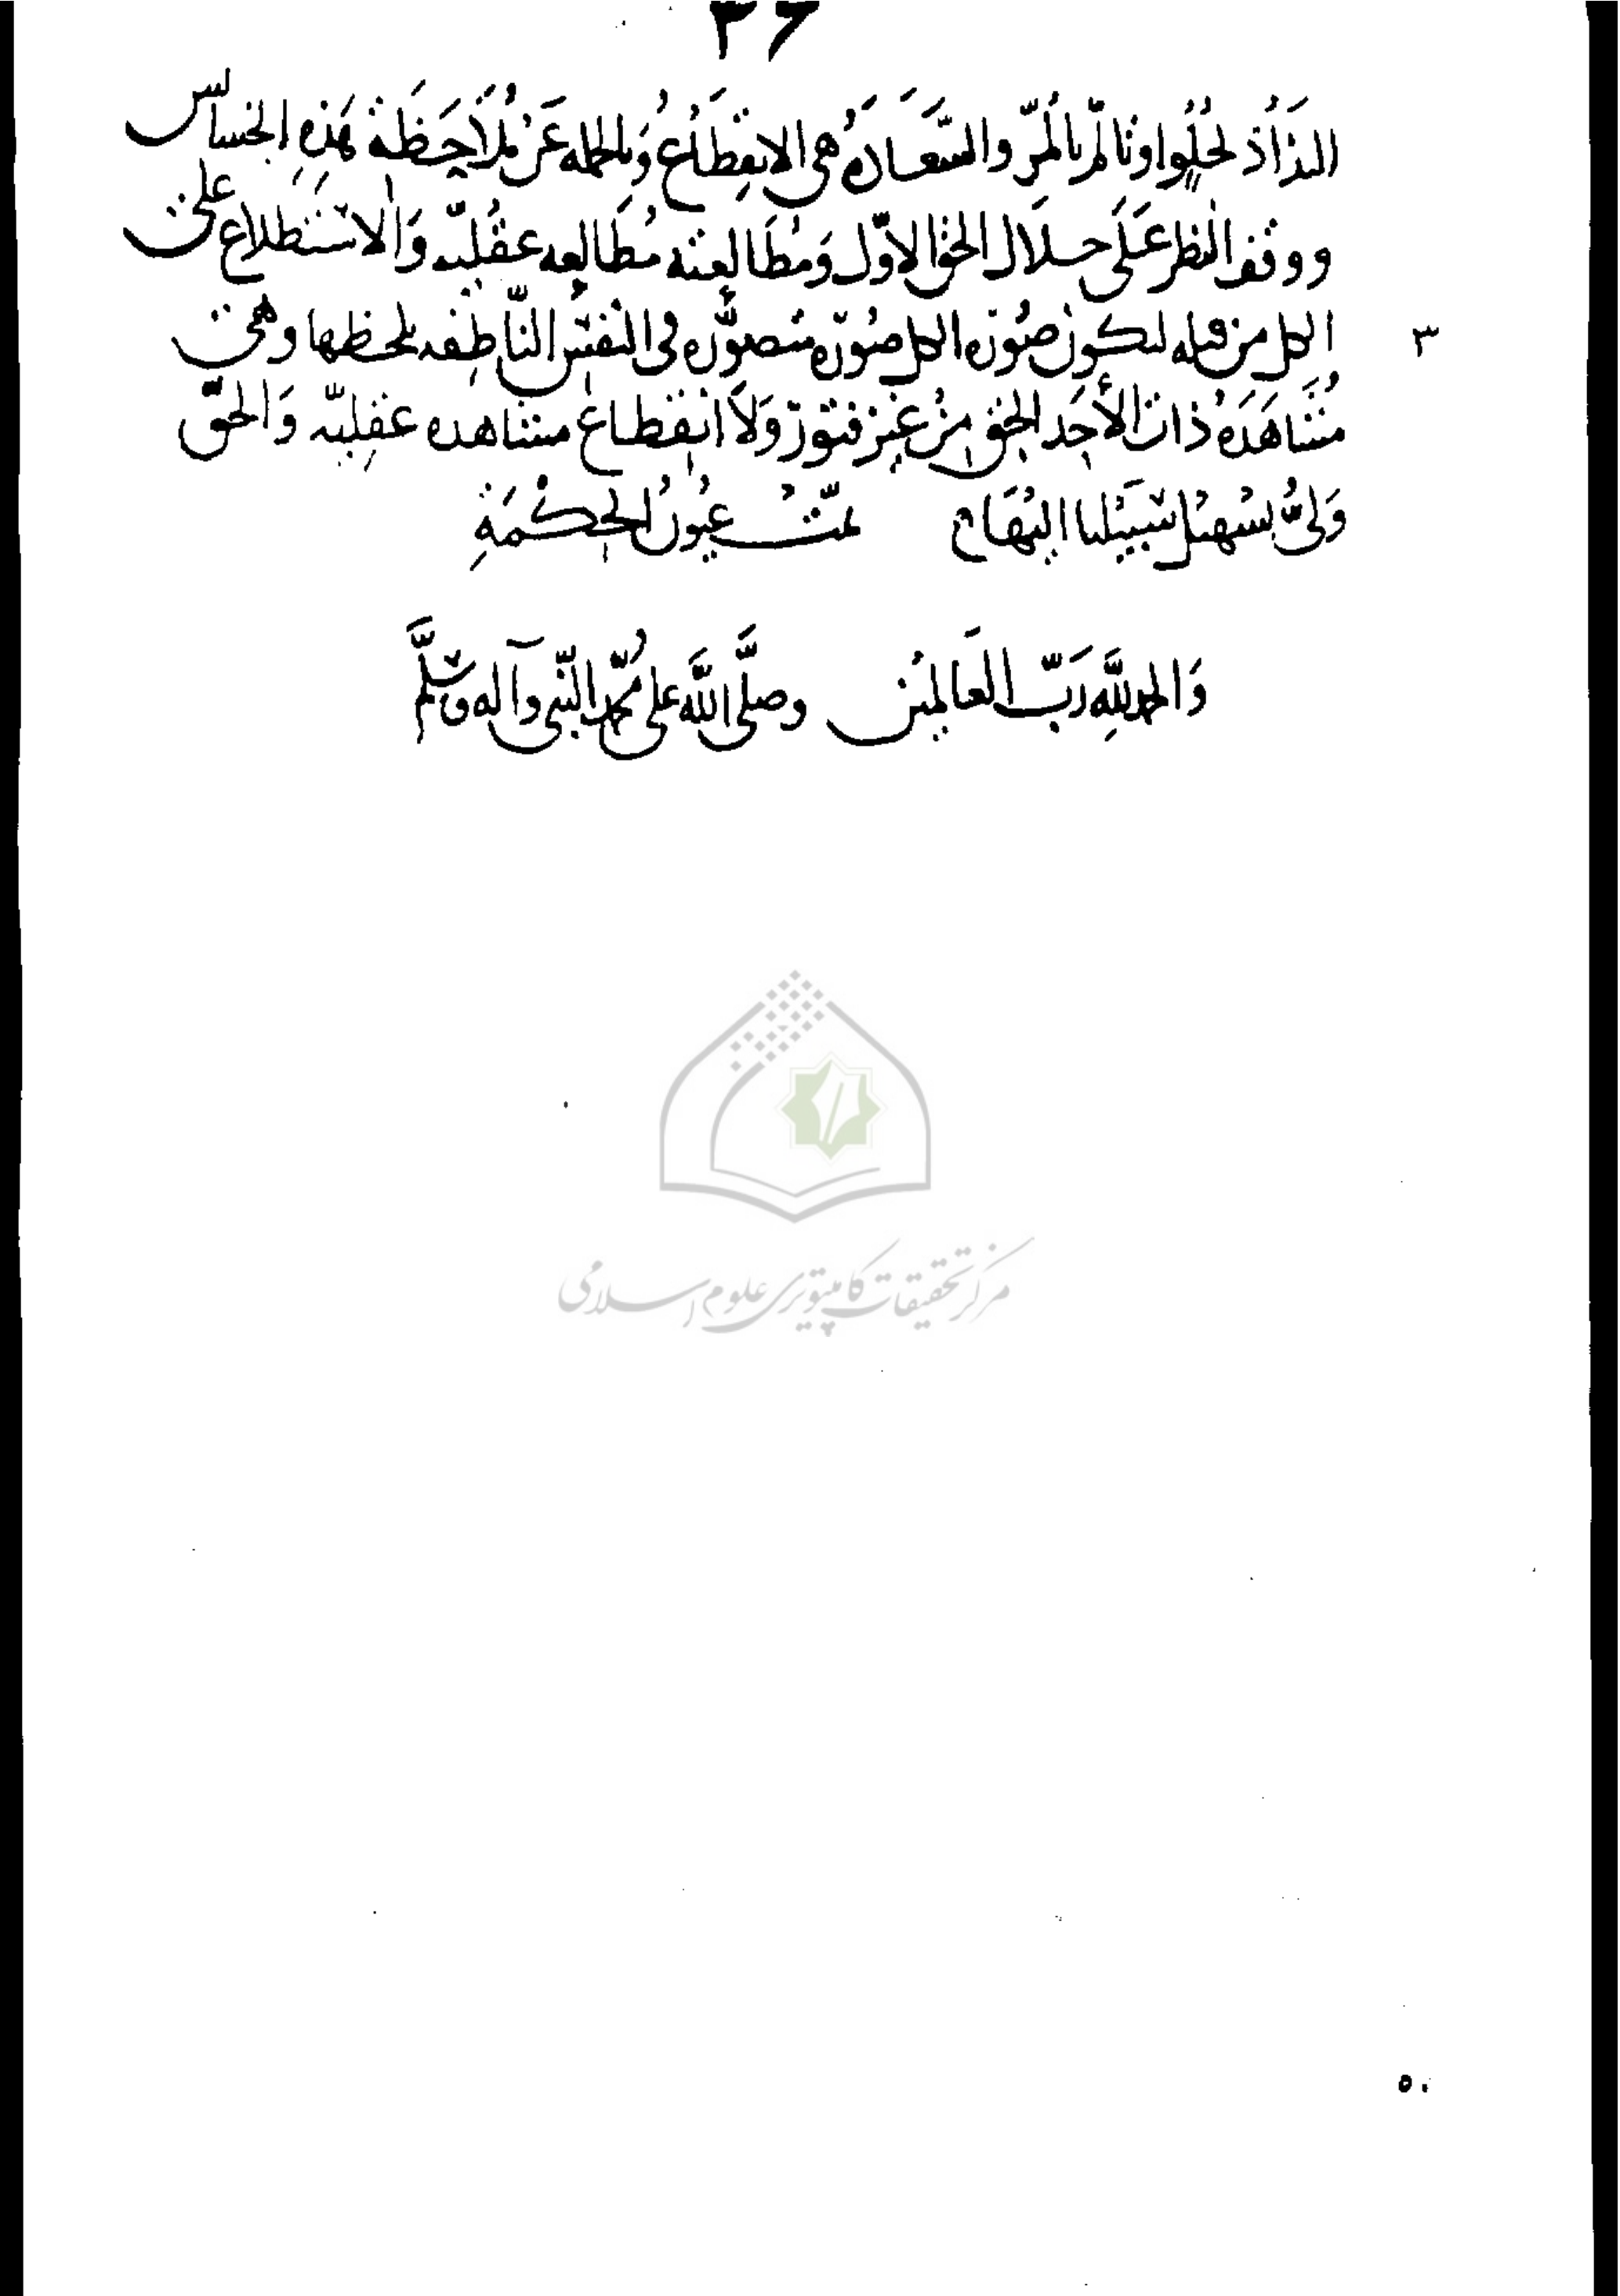 ٣۶
التذاذ لحلو او تالم بالمر والسَّعَادَةُ هى الانقطَاعُ وَبالجمله عَنْ مُلَاحَظَة هَذِهِ الخسائس
ووقف النظر عَلَى جلَال الحق الاوّل وَمُطَالعته مُطَالعه عقليّه وَالاسْتطلاع على
الكل من قبله لتكون صُوْرَه الكل صُوْرَه متصَوَّره فى النفْس النَّاطِقه يلحظها وهى ٣
مُشَاهَدَه ذات الأحَد الحق مِنْ غير فتورٍ وَلَا انقطاع مشاهده عقليّه وَالحقّ
وَلىُّ تسهيْل سَبيْلنا اليْهَا تمّتْ عُيُونُ الحِكْمَةِ
وَالحمد لِلَّهِ رَبّ العَالمين وصلَّى اللَّه على مُحمّد النّبى وآله وسَلَّم
مرکز تحقیقات کامپیوتری علوم اسلامی
٥٠